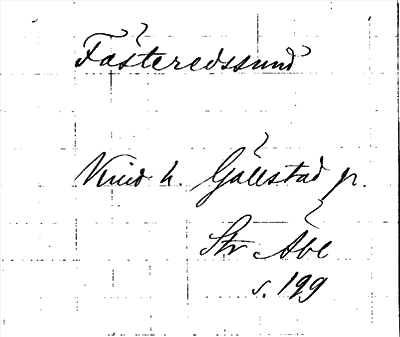 Fästeredssund
Kind h. Gällstad p.
Str Äbl
s. 199